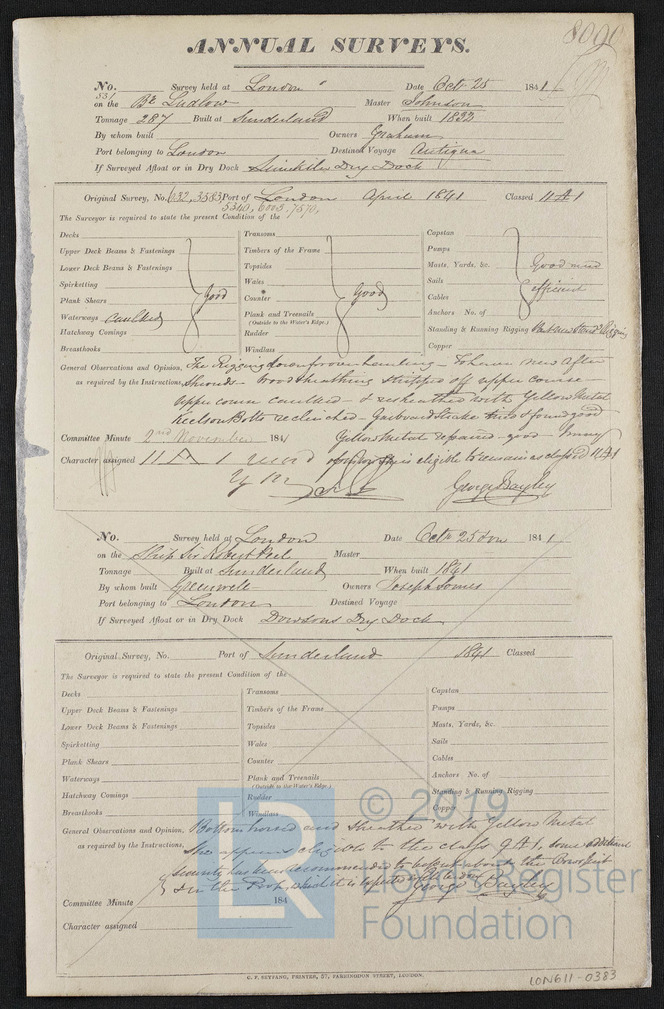 8090
ANNUAL SURVEYS.
No. 531 Survey held at London Date Octr 25 1841
on the Bk Ludlow Master Johnson
Tonnage 287 Built at Sunderland When built 1832
By whom built Owners Graham
Port belonging to London Destined Voyage Antigua
If Surveyed Afloat or in Dry Dock Dry Dock
Original Survey, No. 632, 3583, Port of London April 1841 Classed 11 A 1
5340, 6003, 7570,
The Surveyor is required to state the present Condition of the
Decks Transoms Capstan
Upper Deck Beams & Fastenings Timbers of the Frame Pumps
Lower Deck Beams & Fastenings Topsides Masts, Yards, &c. Good and
Spirketting Wales Sails efficient
Plank Shears Good Counter Good Cables
Waterways caulked Plank and Treenails (Outside to the Water's Edge.) Anchors No. of
Hatchway Comings Rudder Standing & Running Rigging
Breasthooks Windlass Copper
General Observations and Opinion, The Rigging down for overhauling - To have new After
as required by the Instructions, Shrouds - Wood sheathing stripped off upper course -
upper course caulked - & resheathed with Yellow Metal
Keelson Bolts reclinched - Garboard Strake tried & found good
Committee Minute 2nd November 1841 Yellow Metal repaired - good - In my
Character assigned 11 A 1 opinion she is eligible to remain as classed 11 A 1
George Bayley
No. Survey held at London Date Octr 25 1841
on the Ship Sir Robert Peel Master
Tonnage Built at Sunderland When built 1841
By whom built Greenwell Owners Joseph Somes
Port belonging to London Destined Voyage
If Surveyed Afloat or in Dry Dock Dowsons Dry Dock
Original Survey, No. Port of Sunderland 1841 Classed
The Surveyor is required to state the present Condition of the
Decks Transoms Capstan
Upper Deck Beams & Fastenings Timbers of the Frame Pumps
Lower Deck Beams & Fastenings Topsides Masts, Yards, &c.
Spirketting Wales Sails
Plank Shears Counter Cables
Waterways Plank and Treenails (Outside to the Water's Edge.) Anchors No. of
Hatchway Comings Rudder Standing & Running Rigging
Breasthooks Windlass Copper
General Observations and Opinion, Bottom horned and Sheathed with Yellow Metal
as required by the Instructions, She appears eligible to the class 9 A 1, some additional
security has been recommended to about the Bowsprit
& in the Poop, which is to
George Bayley
Committee Minute 184
Character assigned
C. F. SEYFANG, PRINTER, 57, FARRINGDON STREET, LONDON.
LON611-0383
© 2019
LR
Lloyd's Register
Foundation